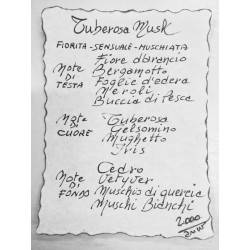 Tuberosa Musk
FIORITA - SENSUALE - MUSCHIATA
Note DI TESTA
Fiore d'arancio
Bergamotto
Foglie d'edera
Neroli
Buccia di Pesca
Note DI CUORE
Tuberosa
Gelsomino
Mughetto
Iris
Note DI FONDO
Cedro
Vetyver
Muschio di quercia
Muschi Bianchi
2000